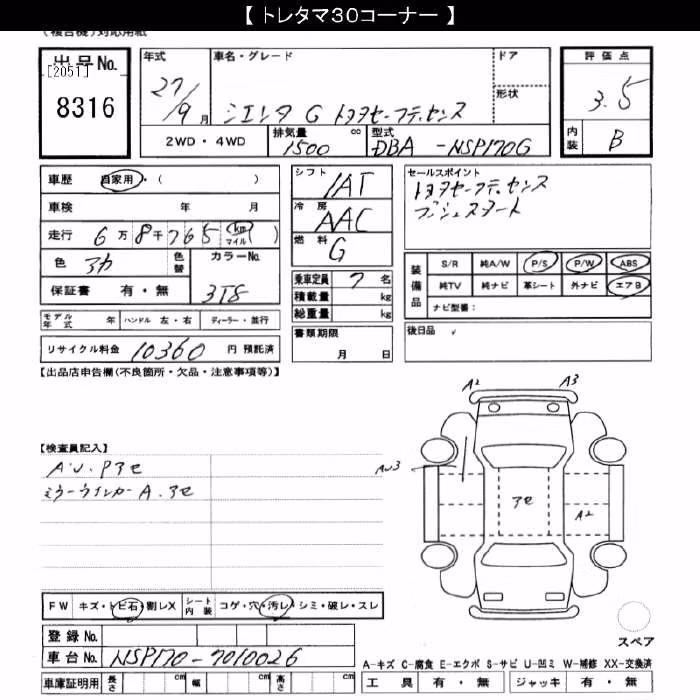 【 トレタマ30コーナー 】
(複合機)対応用紙
出品No.
[2051]
8316
年式
27/9月
車名・グレード
シエンタ G トヨタセーフティセンス
ドア
形状
評価点
3.5
内装
B
2WD・4WD
排気量
1500
cc
型式
DBA-NSP170G
車歴
自家用・( )
車検 年 月
走行 6万8千765 (km マイル)
色 アカ
色替
カラーNo.
3T8
保証書 有・無
シフト
IAT
冷房
AAC
燃料
G
セールスポイント
トヨタセーフティセンス
プッシュスタート
乗車定員 7名
積載量 kg
総重量 kg
装備品
S/R 純A/W P/S P/W ABS
純TV 純ナビ 革シート 外ナビ エアB
ナビ型番:
モデル年式 年 ハンドル 左・右 ディーラー・並行
書類期限
月 日
後日品
リサイクル料金 10360 円 預託済
【出品店申告欄(不良箇所・欠品・注意事項等)】
A2
A3
【検査員記入】
AU.Pアセ
ミラーウインカーA.アセ
AU3
アセ
A2
FW キズ・トビ石・割レX シート内装 コゲ・穴・汚レ・シミ・破レ・スレ
登録No.
車台No. NSP170-7010026
車庫証明用 長さ cm 幅 cm 高さ cm
スペア
A-キズ C-腐食 E-エクボ S-サビ U-凹ミ W-補修 XX-交換済
工具 有・無 ジャッキ 有・無